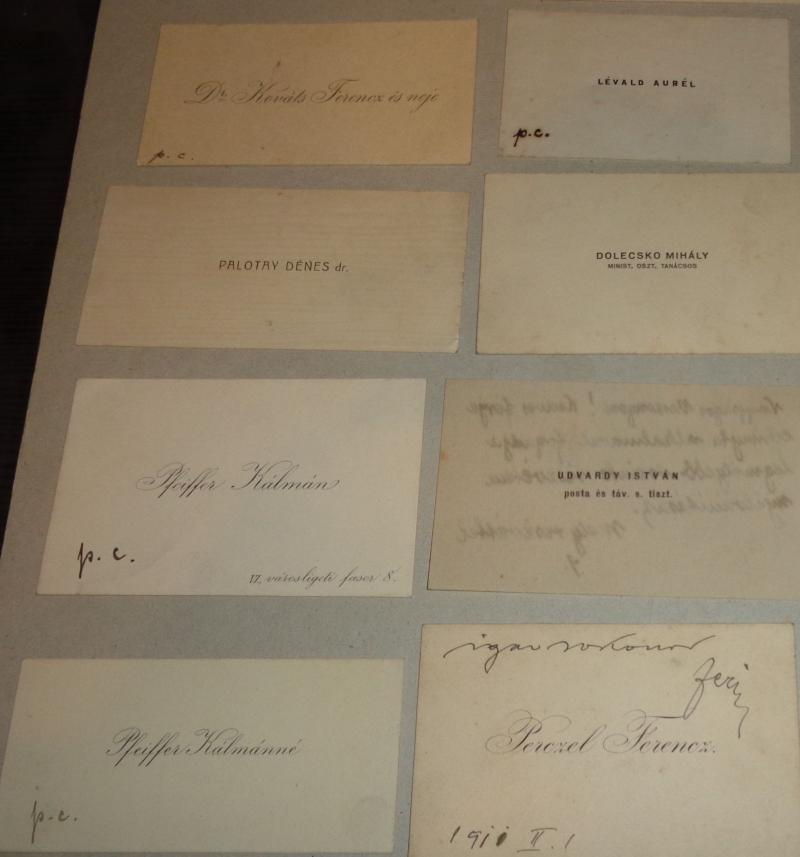 Dr. Kováts Ferencz és neje
p. c.
LÉVALD AURÉL
p.c.
PALOTAY DÉNES dr.
DOLECSKO MIHÁLY
MINIST. OSZT. TANÁCSOS
Pfeiffer Kálmán
p. c.
városligeti fasor 8.
UDVARDY ISTVÁN
posta és táv. s. tiszt.
Pfeiffer Kálmánné
p. c.
igaz rokonod
Feri
Perczel Ferencz.
1911 II. 1